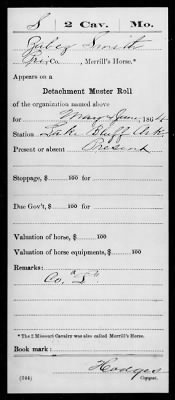 S | 2 Cav. | Mo.
Smith
Co. , Merrill's Horse.*
Appears on a
Detachment Muster Roll
of the organization named above
for May & June, 186
Station Bluff Ark
Present or absent Present
Stoppage, $ 100 for
Due Gov't, $ 100 for
Valuation of horse, $ 100
Valuation of horse equipments, $ 100
Remarks:
Co.
*The 2 Missouri Cavalry was also called Merrill's Horse.
Book mark:
Hodges
(344) Copyist.